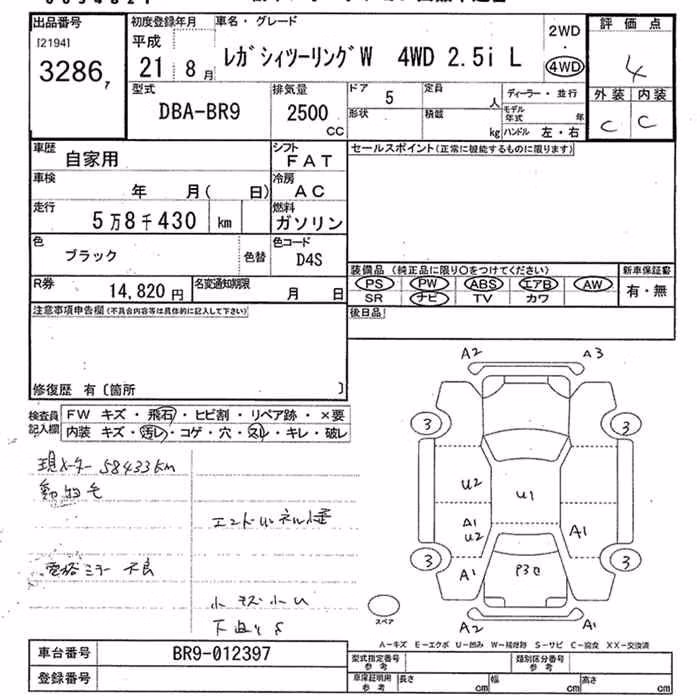 出品番号 初度登録年月 車名・グレード 2WD 評価点
[2194] 平成
32867 21 8月 レガシィツーリングW 4WD 2.5i L 4WD 4
型式 排気量 ドア 5 定員 人 ディーラー・並行 外装 内装
DBA-BR9 2500 CC 形状 積載 kg モデル年式 年 C C
ハンドル 左・右
車歴 自家用 シフト FAT セールスポイント(正常に機能するものに限ります)
車検 年 月( 日) 冷房 AC
走行 5万8千430 km 燃料 ガソリン
色 ブラック 色替 色コード D4S
装備品 (純正品に限り○をつけてください) 新車保証書
R券 14,820円 名変通知期限 月 日 PS PW ABS エアB AW 有・無
SR ナビ TV カワ
注意事項申告欄(不具合内容等は具体的に記入して下さい) 後日品
修復歴 有〔箇所 〕
検査員記入欄 FW キズ・飛石・ヒビ割・リペア跡・×要
内装 キズ・汚レ・コゲ・穴・スレ・キレ・破レ
現メーター 58433km
動物毛
エンドパネル
電格ミラー 不良
小キズ小U
A2 A3
3 3
U2 U1
A1 U2 A1
3 3
A1
A2 A1
スペア
A-キズ E-エクボ U-凹み W-補修跡 S-サビ C-腐食 XX-交換済
車台番号 BR9-012397
登録番号
型式指定番号 参考 類別区分番号 参考
車庫証明用 参考 長さ cm 幅 cm 高さ cm